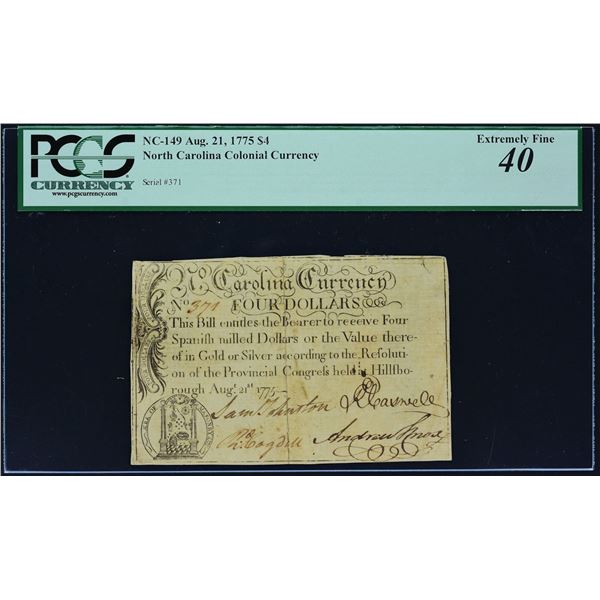 PCGS
CURRENCY
www.pcgscurrency.com
NC-149 Aug. 21, 1775 $4
North Carolina Colonial Currency
Serial #371
Extremely Fine
40
No. Carolina Currency
No 371 FOUR DOLLARS &c
This Bill entitles the Bearer to receive Four
Spanish milled Dollars or the Value there-
of in Gold or Silver according to the Resoluti-
on of the Provincial Congreſs held at Hillſbo-
rough Augt. 21st 1775
Sam Johnston R Caswell
Rd Cogdell Andrew Knox